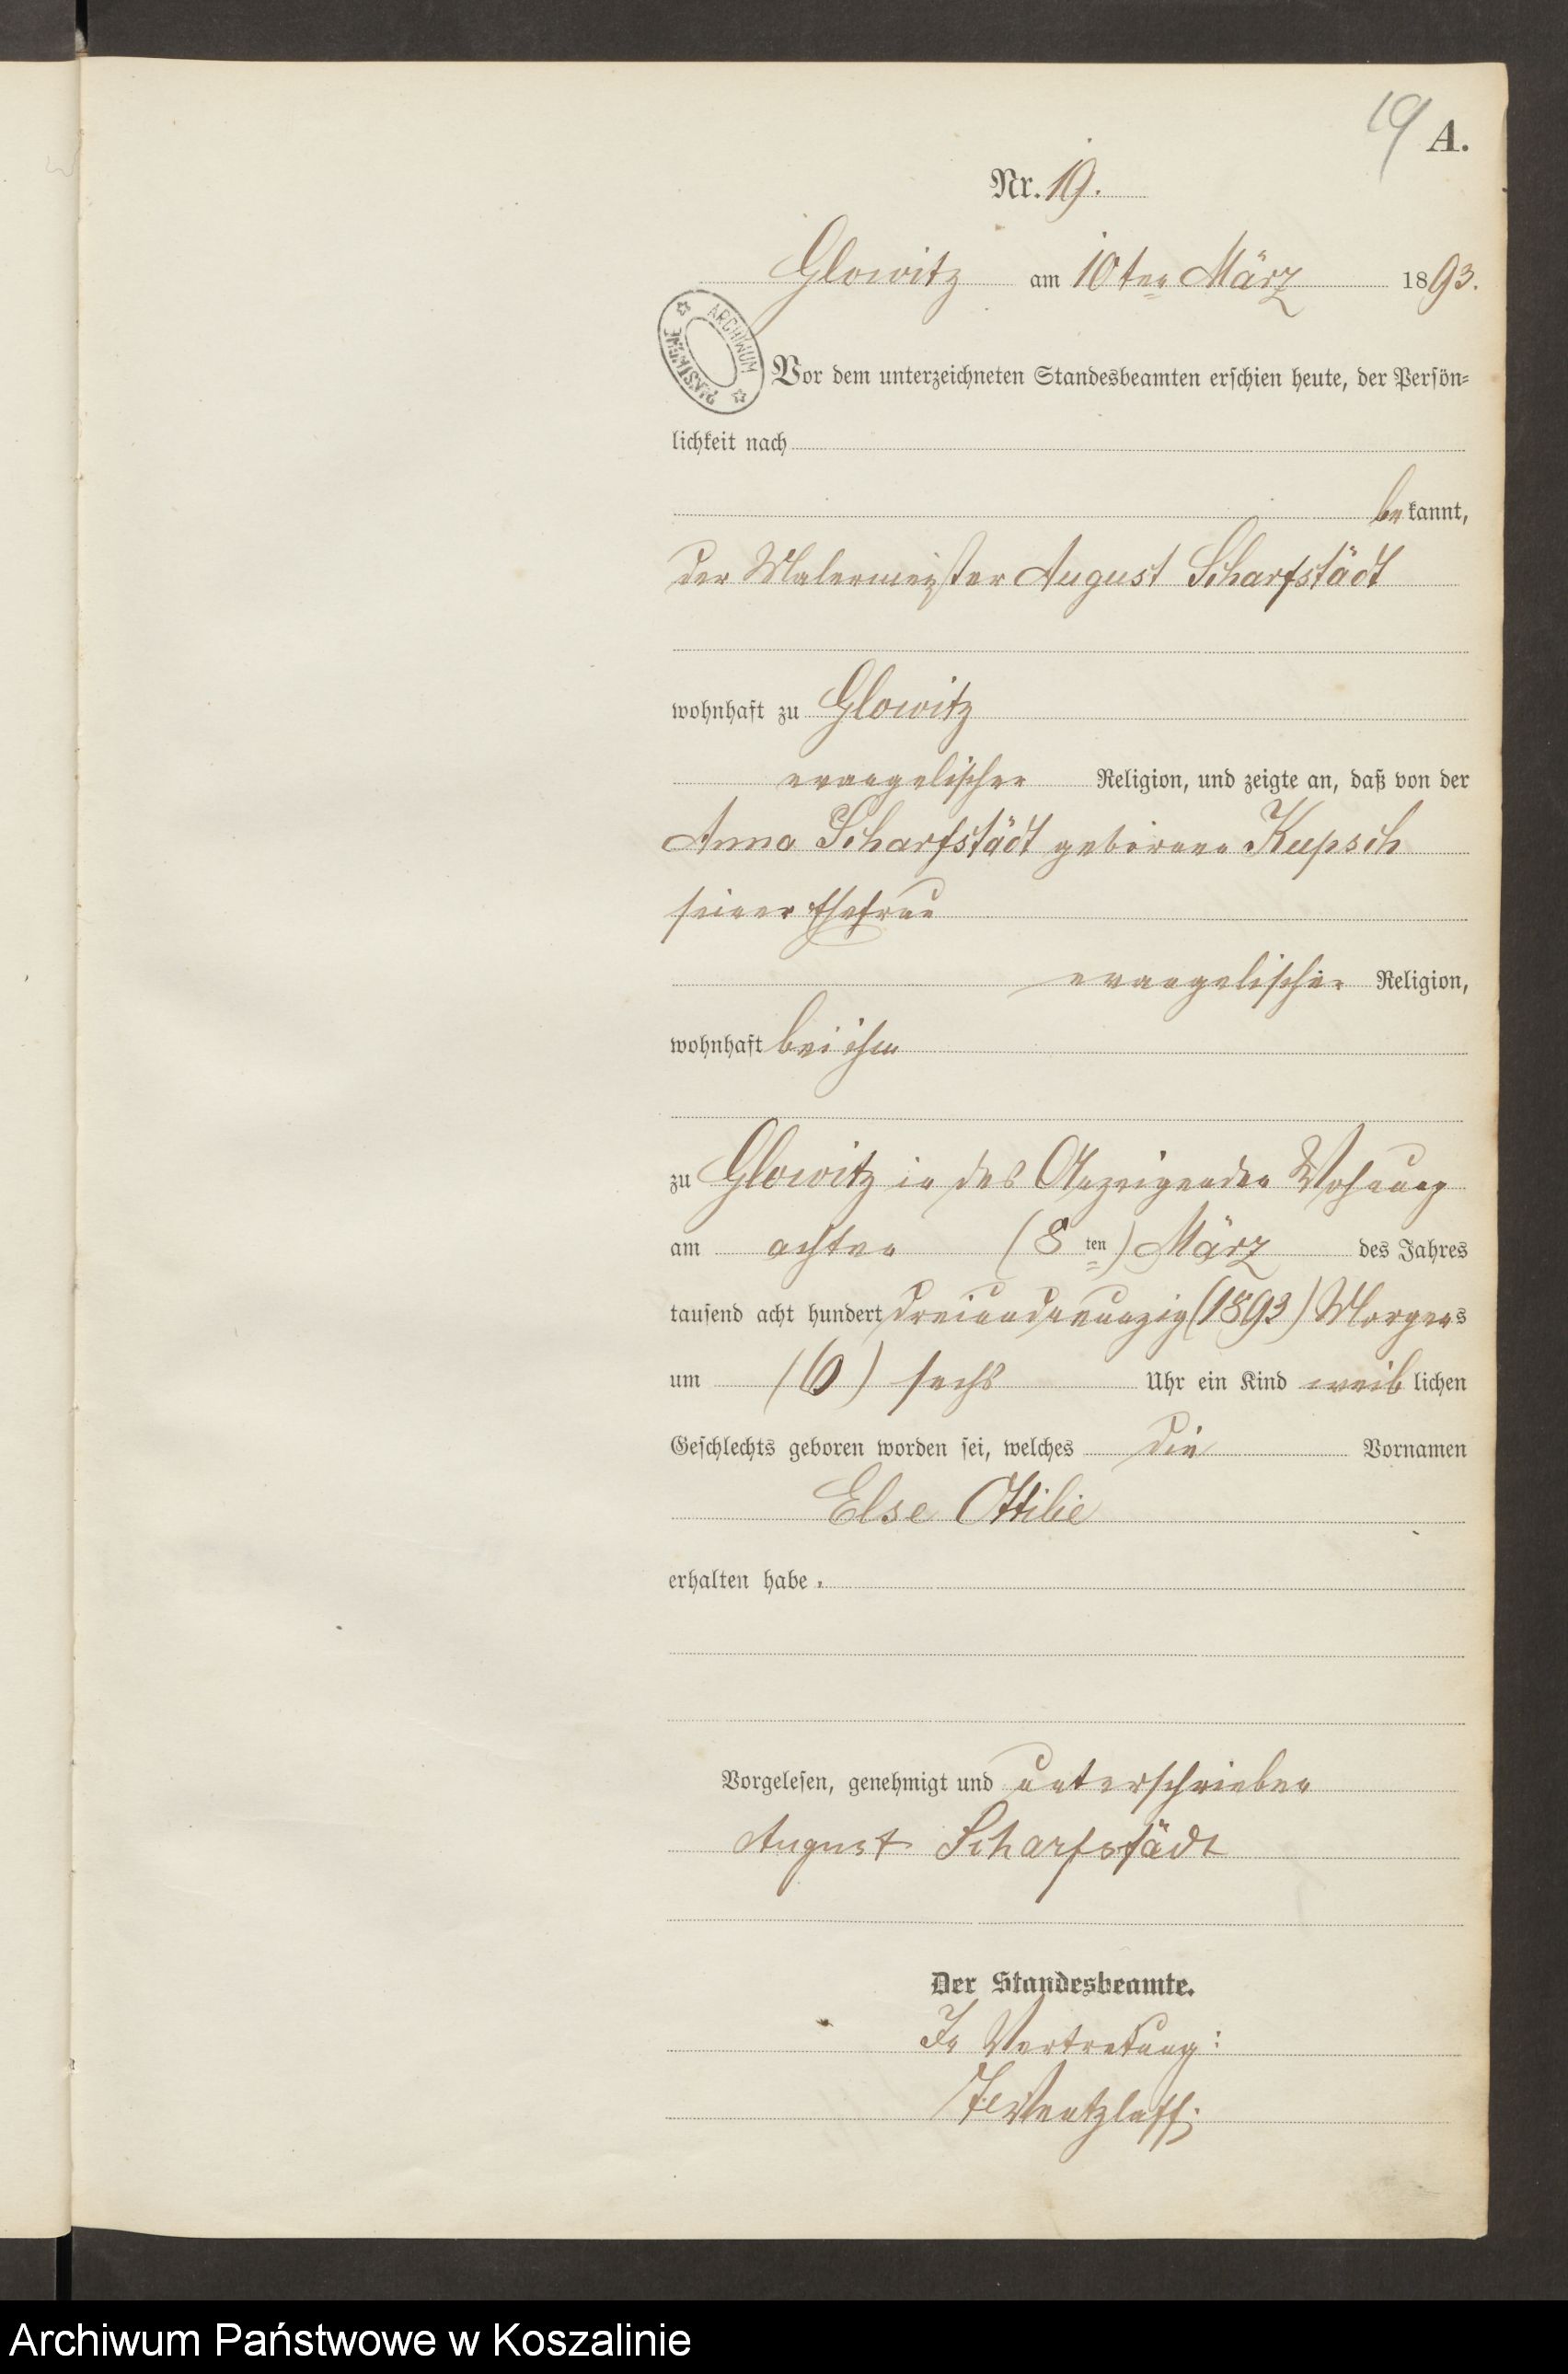 19 A.
Nr. 19.
Glowitz am 10ten März 1893.
ARCHIWUM PAŃSTWOWE
Vor dem unterzeichneten Standesbeamten erschien heute, der Persön-
lichkeit nach
bekannt,
der Malermeister August Scharfstädt
wohnhaft zu Glowitz
evangelischer Religion, und zeigte an, daß von der
Anna Scharfstädt geborene Kupsch
seiner Ehefrau
evangelischer Religion,
wohnhaft bei ihm
zu Glowitz in des Anzeigenden Wohnung
am achten (8 ten) März des Jahres
tausend acht hundert dreiundneunzig (1893) Morgens
um (6) sechs Uhr ein Kind weiblichen
Geschlechts geboren worden sei, welches die Vornamen
Else Ottilie
erhalten habe.
Vorgelesen, genehmigt und unterschrieben
August Scharfstädt
Der Standesbeamte.
In Vertretung:
Wentzlaff.
Archiwum Państwowe w Koszalinie